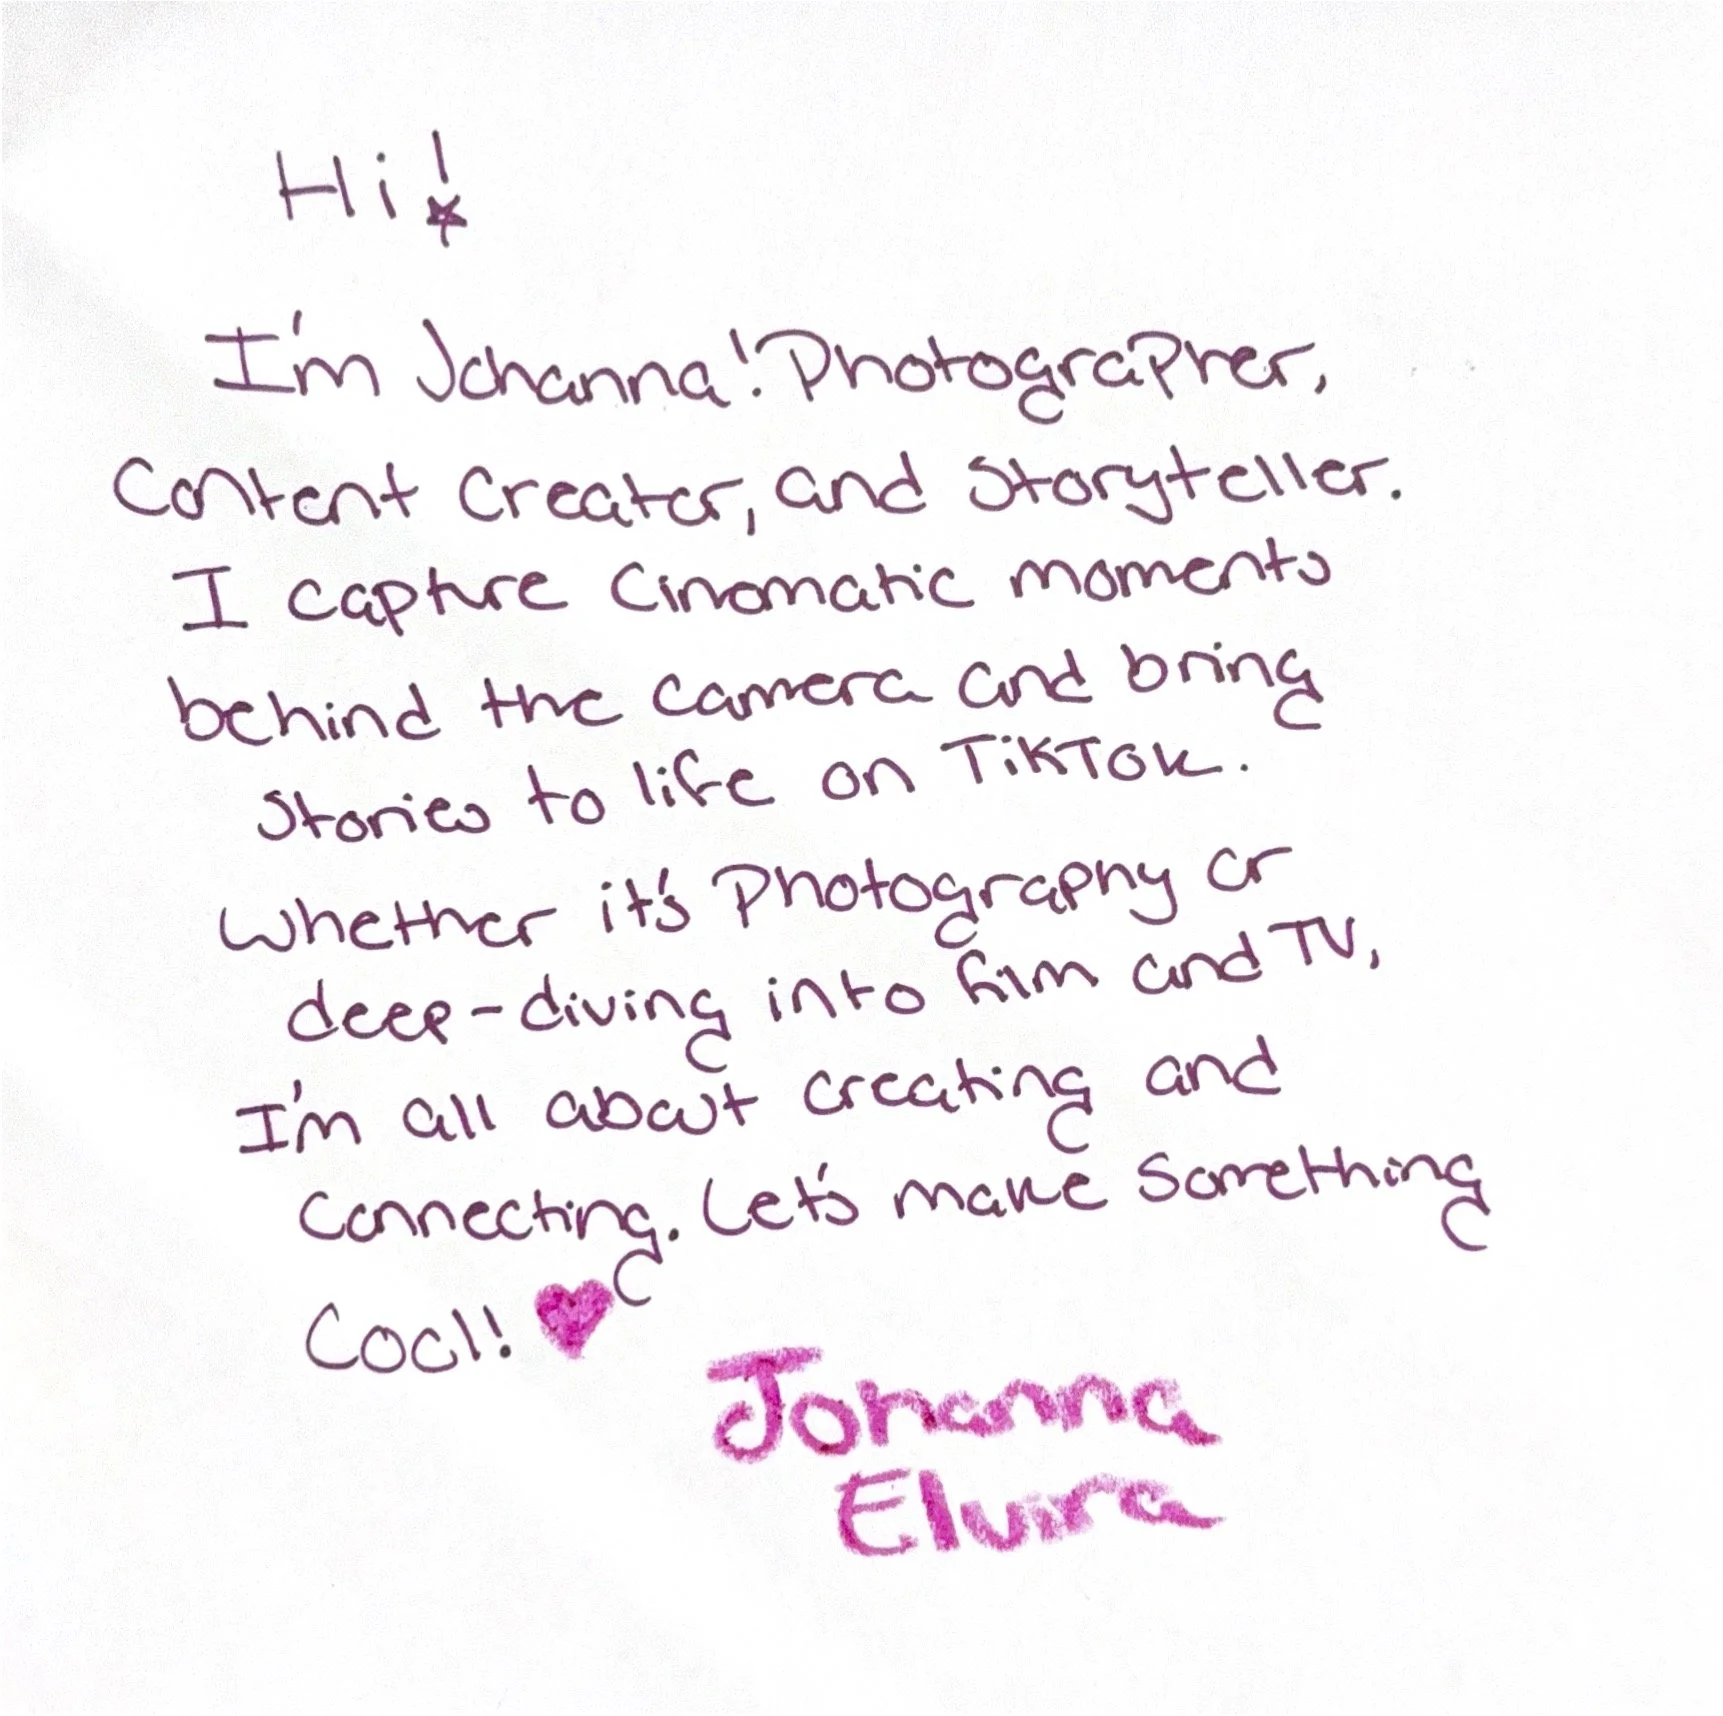 Hi!
I'm Johanna! Photographer,
Content Creator, and Storyteller.
I capture Cinomatic moments
behind the camera and bring
Stories to life on TikTok.
Whether it's Photography or
deep-diving into film and TV,
I'm all about creating and
Connecting. Let's make Something
Cool!
Johanna
Elvira